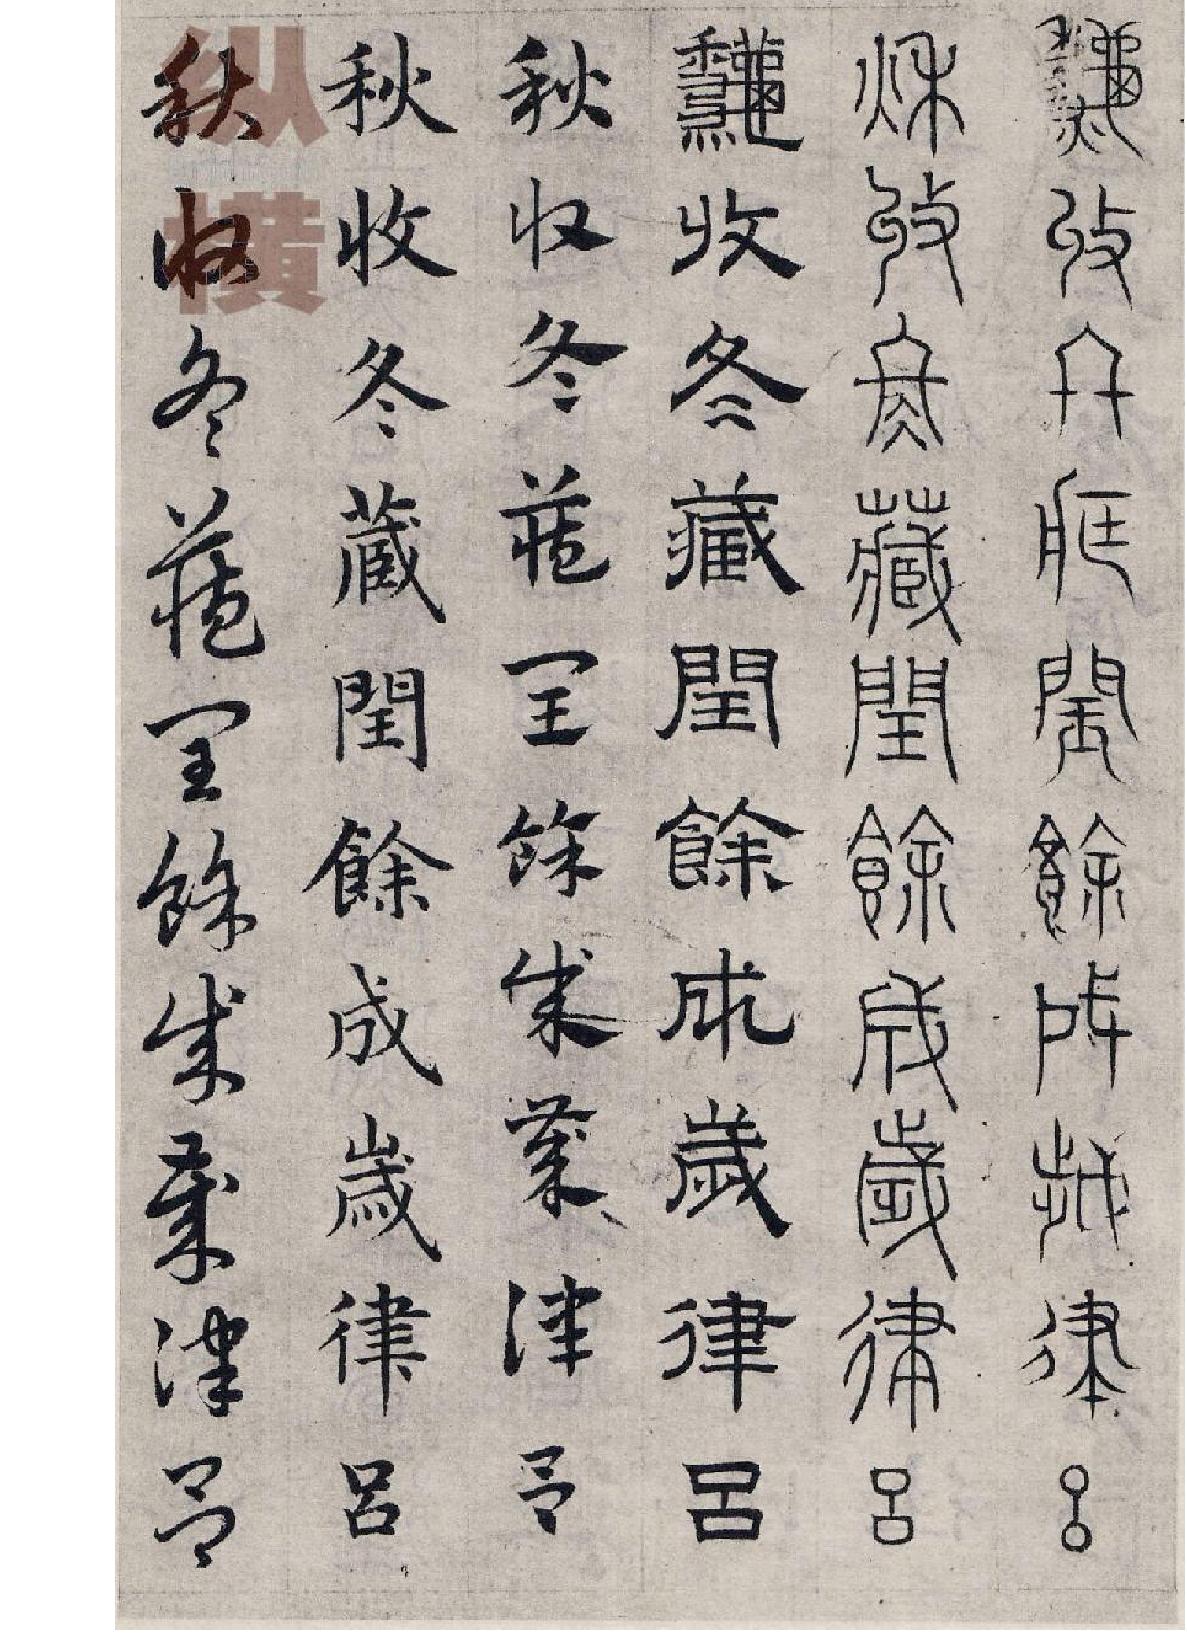 秋收冬藏閏餘成歲律呂
秋收冬藏閏餘成歲律呂
秋收冬藏閏餘成歲律呂
秋收冬藏閏餘成歲律呂
秋收冬藏閏餘成歲律呂
秋收冬藏閏餘成歲律呂
纵横